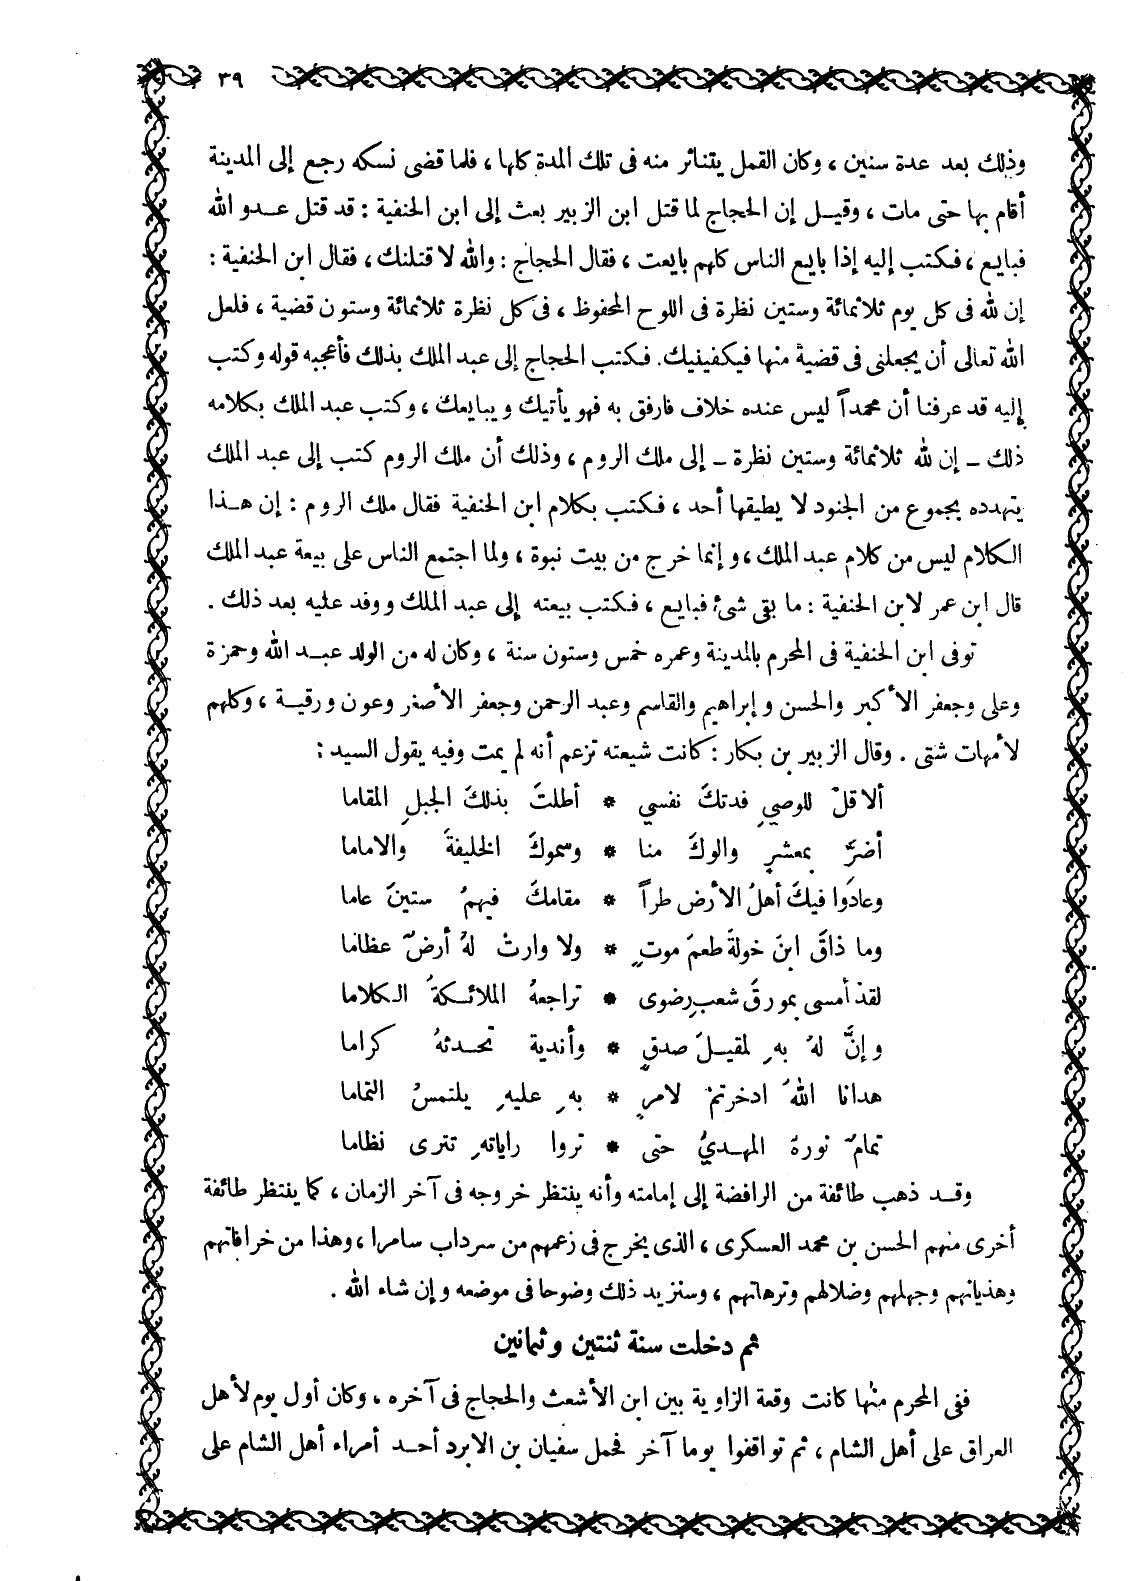 ٣٩
وذلك بعد عدة سنين ، وكان القمل يتناثر منه فى تلك المدة كلها ، فلما قضى نسكه رجع إلى المدينة
أقام بها حتى مات ، وقيــل إن الحجاج لما قتل ابن الزبير بعث إلى ابن الحنفية : قد قتل عــدو الله
فبايع ، فــكتب إليه إذا بايع الناس كلهم بايعت ، فقال الحجاج : والله لا قتلنك ، فقال ابن الحنفية :
إن لله فى كل يوم ثلاثمائة وستين نظرة فى اللوح المحفوظ ، فى كل نظرة ثلاثمائة وستون قضية ، فلعل
الله تعالى أن يجعلنى فى قضية منها فيكفينيك . فــكتب الحجاج إلى عبد الملك بذلك فأعجبه قوله وكتب
إليه قد عرفنا أن محمداً ليس عنده خلاف فارفق به فهو يأتيك ويبايعك ، وكتب عبد الملك بكلامه
ذلك ــ إن لله ثلاثمائة وستين نظرة ــ إلى ملك الروم ، وذلك أن ملك الروم كتب إلى عبد الملك
يتهدده بجموع من الجنود لا يطيقها أحد ، فــكتب بكلام ابن الحنفية فقال ملك الروم : إن هــذا
الــكلام ليس من كلام عبد الملك ، وإنما خرج من بيت نبوة ، ولما اجتمع الناس على بيعة عبد الملك
قال ابن عمر لابن الحنفية : ما بقى شئ فبايع ، فــكتب بيعته إلى عبد الملك ووفد عليه بعد ذلك .
توفى ابن الحنفية فى المحرم بالمدينة وعمره خمس وستون سنة ، وكان له من الولد عبــد الله وحمزة
وعلى وجعفر الأكبر والحسن وإبراهيم والقاسم وعبد الرحمن وجعفر الأصغر وعون ورقيــة ، وكلهم
لأمهات شتى . وقال الزبير بن بكار : كانت شيعته تزعم أنه لم يمت وفيه يقول السيد :
ألا قلْ للوصيِ فدتكَ نفسي * أطلتَ بذلكَ الجبلِ المقاما
أضرَّ بمعشرٍ والوكَ منا * وسموكَ الخليفةَ والاماما
وعادَوا فيكَ أهلُ الأرض طراً * مقامكَ فيهمُ ستينَ عاما
وما ذاقَ ابنَ خولةَ طعمَ موتٍ * ولا وارتْ لهُ أرضٌ عظاما
لقدْ أمسى بمورقَ شعبِ رضوى * تراجعهُ الملائــكةُ الــكلاما
وإنَّ لهُ بهِ لمقيــلَ صدقٍ * وأندية تحــدثهُ كراما
هدانا اللهُ ادخرتمْ لامرٍ * بهِ عليهِ يلتمسُ التماما
تمامٌ نورة المهــديُ حتى * تروا راياتهِ تترى نظاما
وقــد ذهب طائفة من الرافضة إلى إمامته وأنه ينتظر خروجه فى آخر الزمان ، كما ينتظر طائفة
أخرى منهم الحسن بن محمد العسكرى ، الذى يخرج فى زعمهم من سرداب سامرا ، وهذا من خرافاتهم
وهذيانهم وجهلهم وضلالهم وترهاتهم ، وسنزيد ذلك وضوحا فى موضعه وإن شاء الله .
ثم دخلت سنة ثنتين وثمانين
ففى المحرم منها كانت وقعة الزاوية بين ابن الأشعث والحجاج فى آخره ، وكان أول يوم لأهل
العراق على أهل الشام ، ثم تواقفوا يوما آخر فحمل سفيان بن الابرد أحــد أمراء أهل الشام على